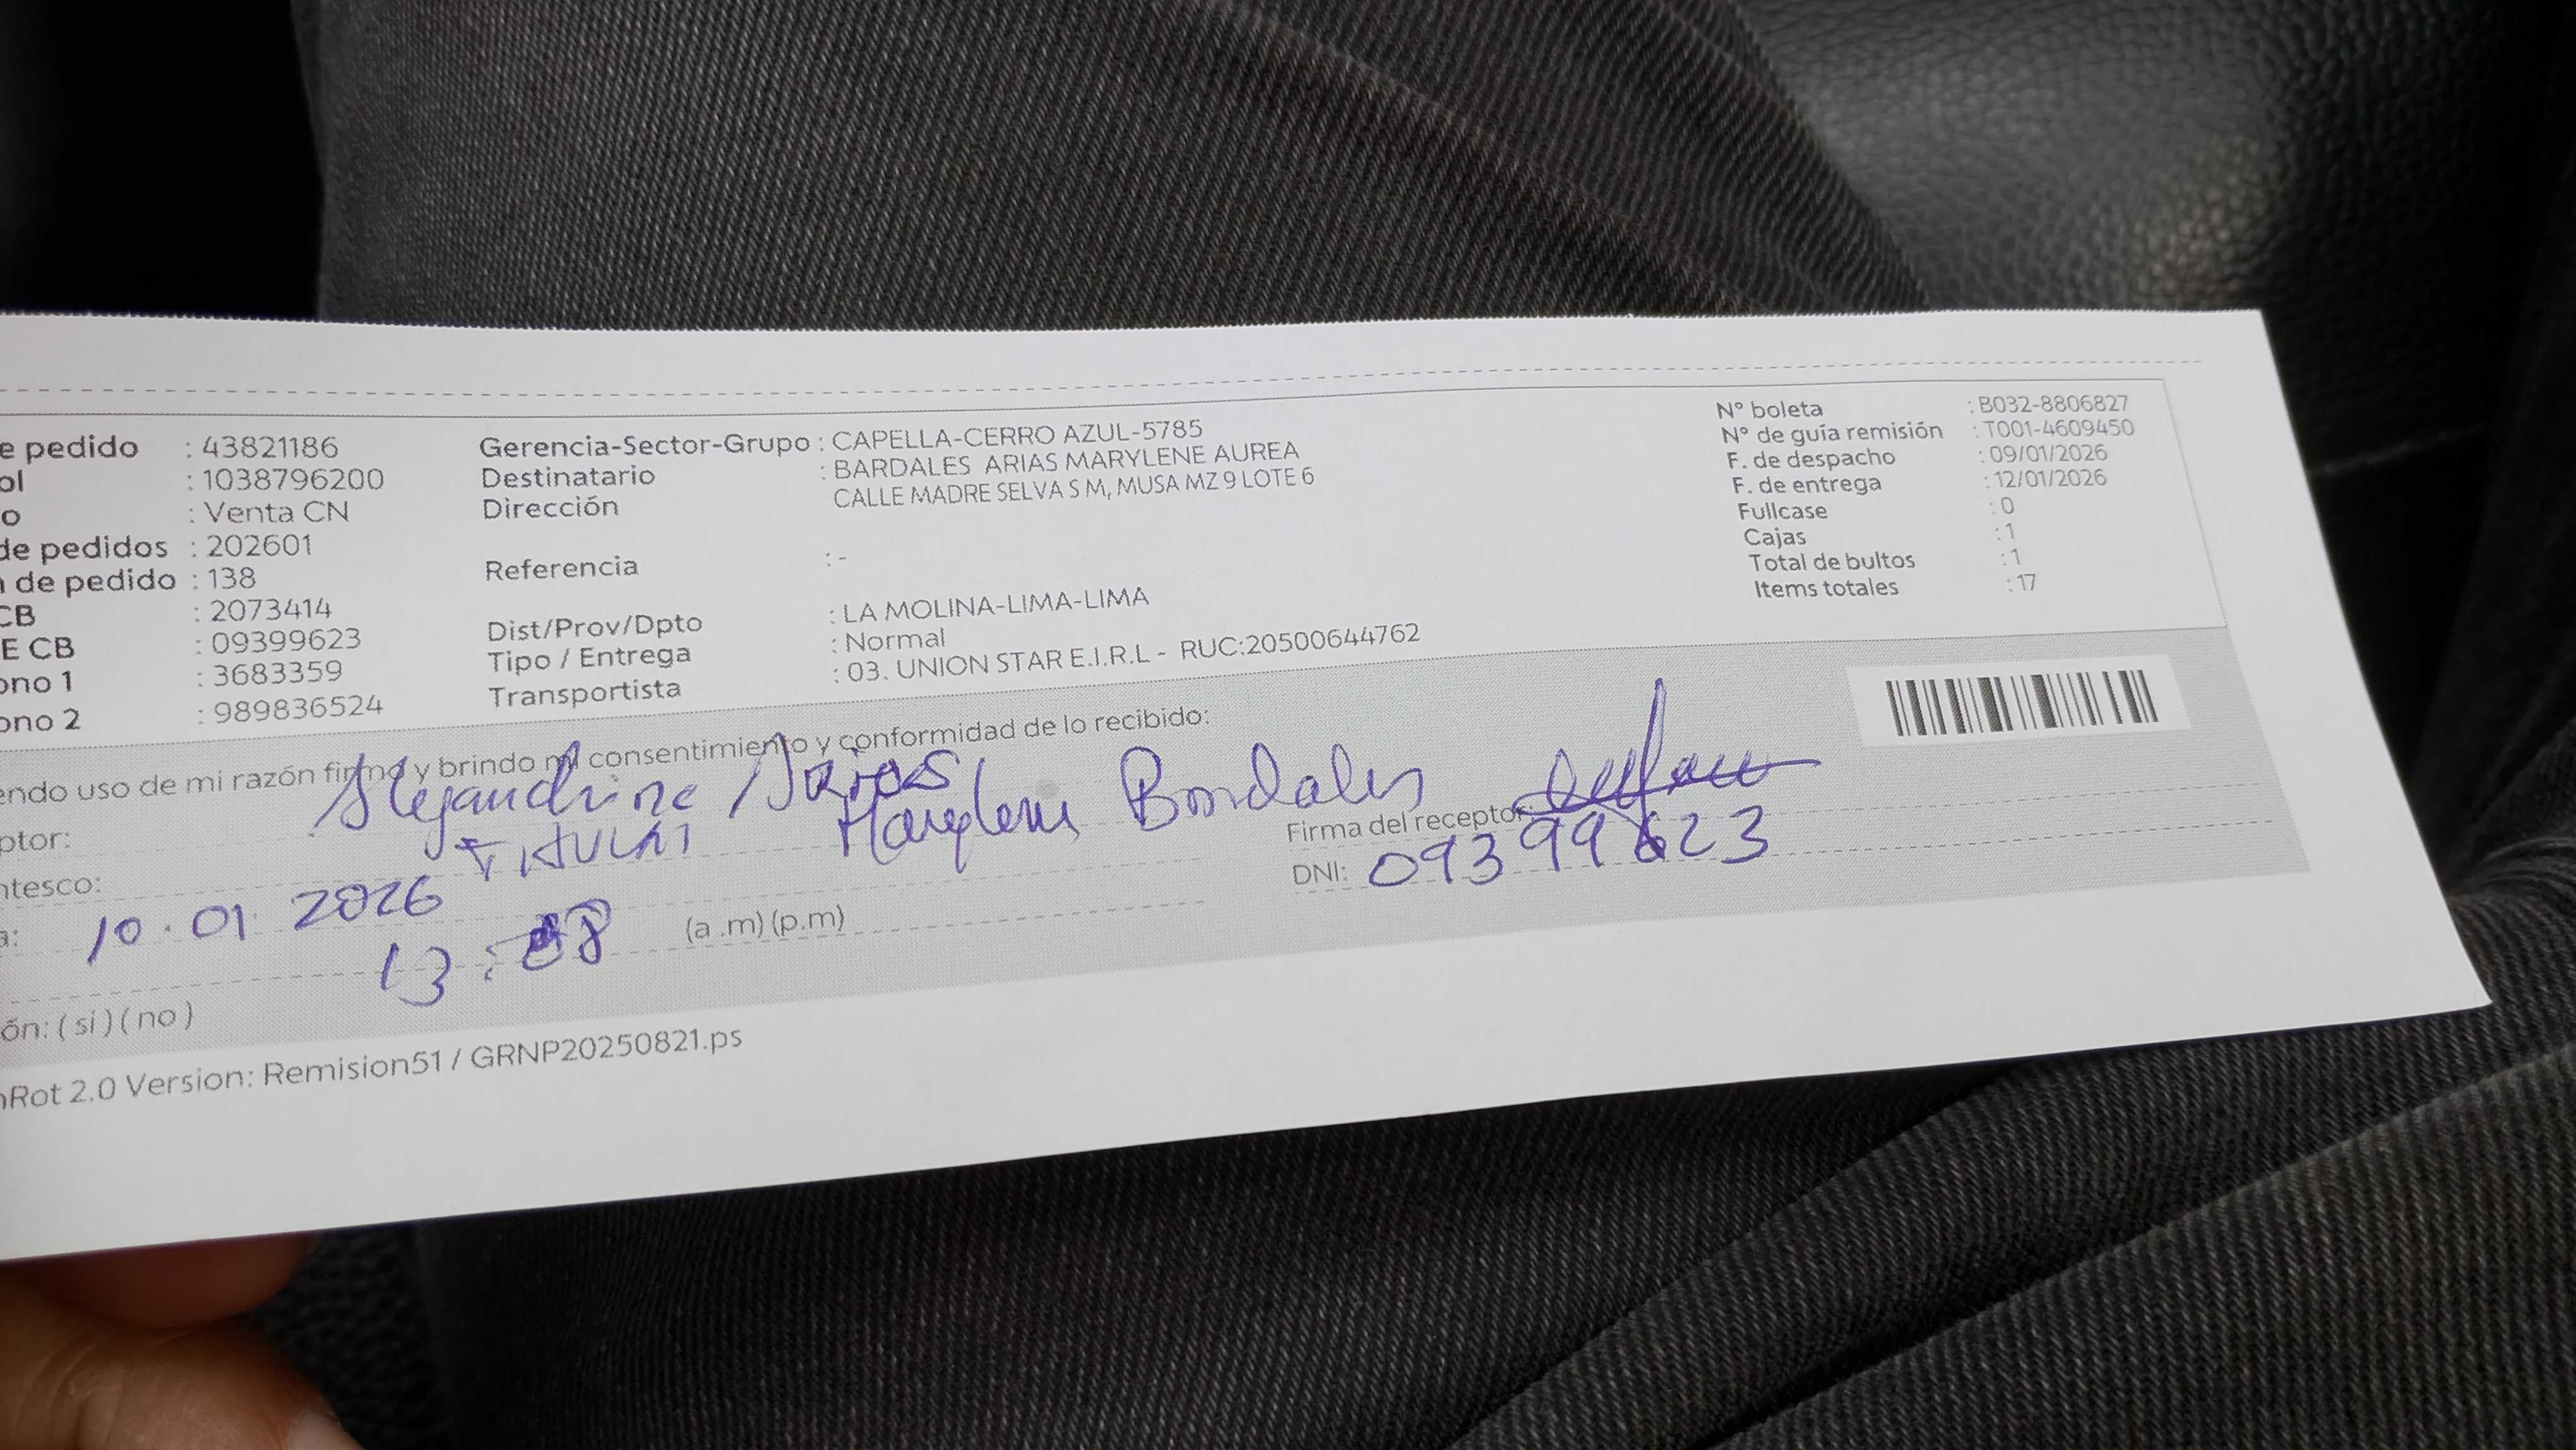 e pedido : 43821186
ol : 1038796200
o : Venta CN
de pedidos : 202601
de pedido : 138
CB : 2073414
E CB : 09399623
ono 1 : 3683359
ono 2 : 989836524
Gerencia-Sector-Grupo : CAPELLA-CERRO AZUL-5785
Destinatario : BARDALES ARIAS MARYLENE AUREA
Dirección CALLE MADRE SELVA S M, MUSA MZ 9 LOTE 6
Referencia : -
Dist/Prov/Dpto : LA MOLINA-LIMA-LIMA
Tipo / Entrega : Normal
Transportista : 03. UNION STAR E.I.R.L - RUC:20500644762
N° boleta : B032-8806827
N° de guía remisión : T001-4609450
F. de despacho : 09/01/2026
F. de entrega : 12/01/2026
Fullcase : 0
Cajas : 1
Total de bultos : 1
Items totales : 17
endo uso de mi razón firmo y brindo mi consentimiento y conformidad de lo recibido:
ptor: Alejandrina Arias
Marylene Bardales
Firma del receptor:
ntesco: TITULAR
DNI: 09399623
a: 10.01 2026
13: (a .m) (p.m)
ón: ( si ) ( no )
nRot 2.0 Version: Remision51 / GRNP20250821.ps